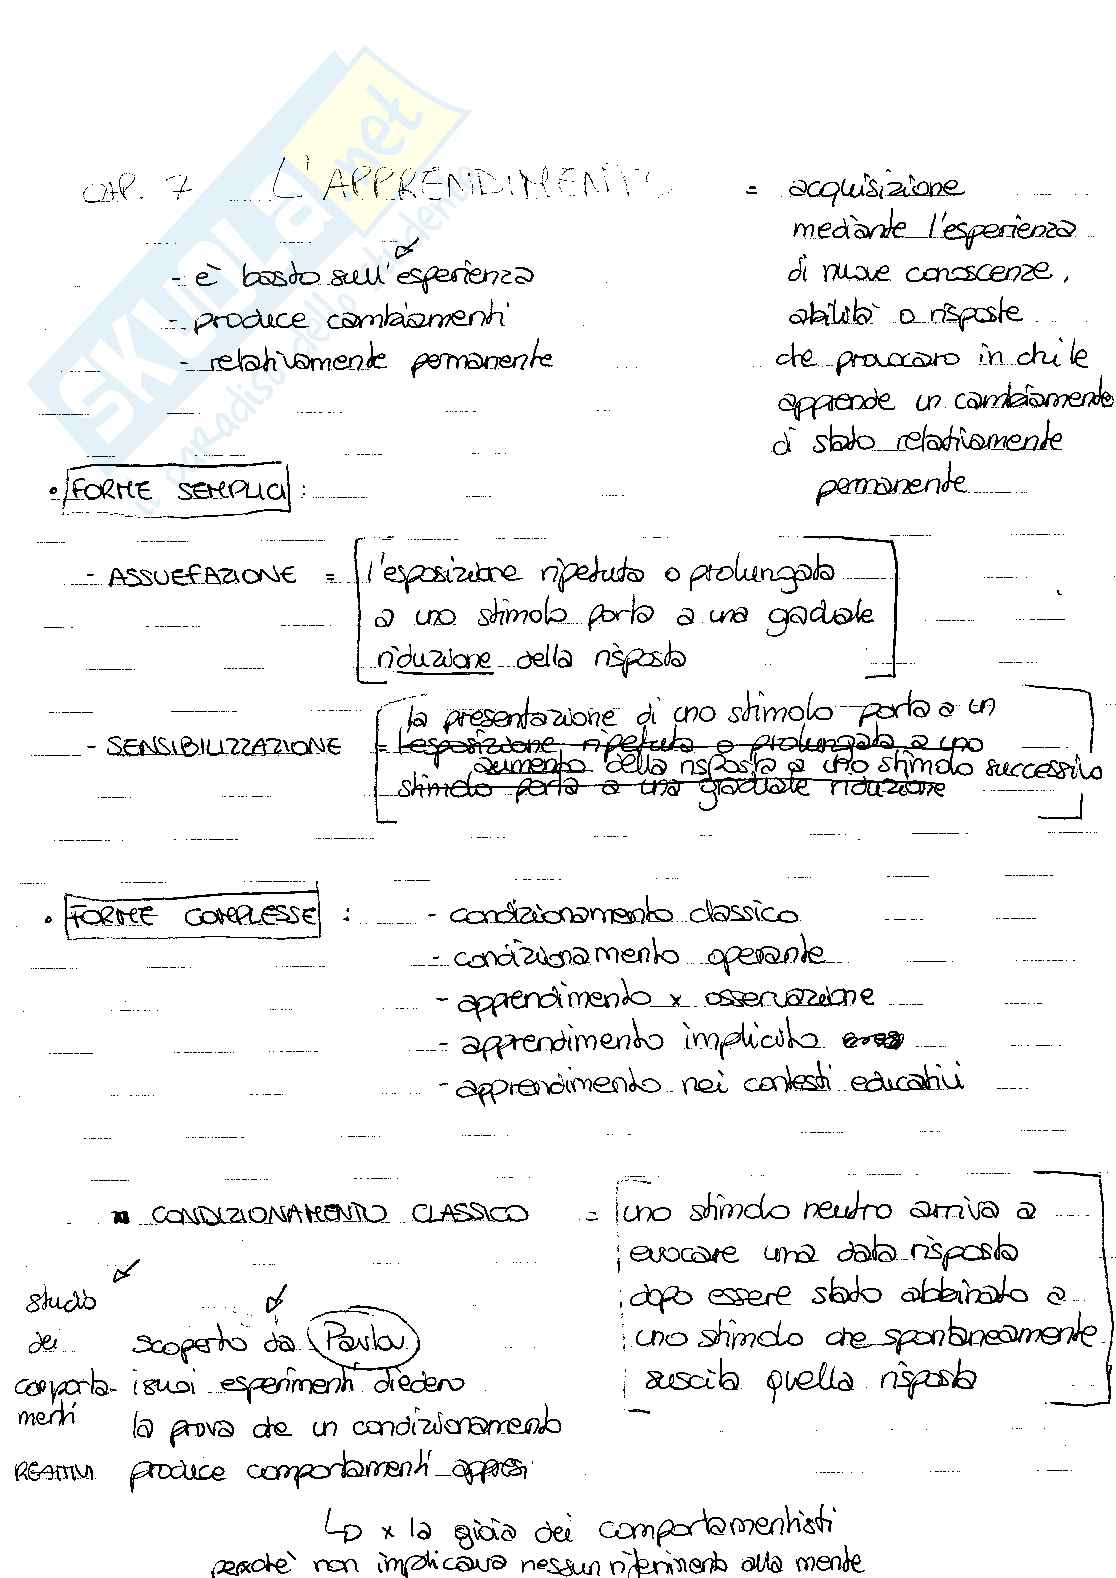 CAP. 7 L'APPRENDIMENTO = acquisizione
mediante l'esperienza
- è basato sull'esperienza
di nuove conoscenze,
- produce cambiamenti
abilità o risposte
- relativamente permanente
che provocano in chi le
apprende un cambiamento
di stato relativamente
permanente
• FORME SEMPLICI :
- ASSUEFAZIONE = l'esposizione ripetuta o prolungata
a uno stimolo porta a una graduale
riduzione della risposta
la presentazione di uno stimolo porta a un
- SENSIBILIZZAZIONE = l'esposizione ripetuta o prolungata a uno
aumento della risposta a uno stimolo successivo
stimolo porta a una graduale riduzione
• FORME COMPLESSE : - condizionamento classico
- condizionamento operante
- apprendimento x osservazione
- apprendimento implicito
- apprendimento nei contesti educativi
CONDIZIONAMENTO CLASSICO = uno stimolo neutro arriva a
evocare una data risposta
dopo essere stato abbinato a
uno stimolo che spontaneamente
suscita quella risposta
studio
dei
comporta-
menti
REATTIVI
scoperto da Pavlov
i suoi esperimenti diedero
la prova che un condizionamento
produce comportamenti appresi
↳ x la gioia dei comportamentisti
perchè non implicava nessun riferimento alla mente
SKUOLa.net
il paradiso dello studente